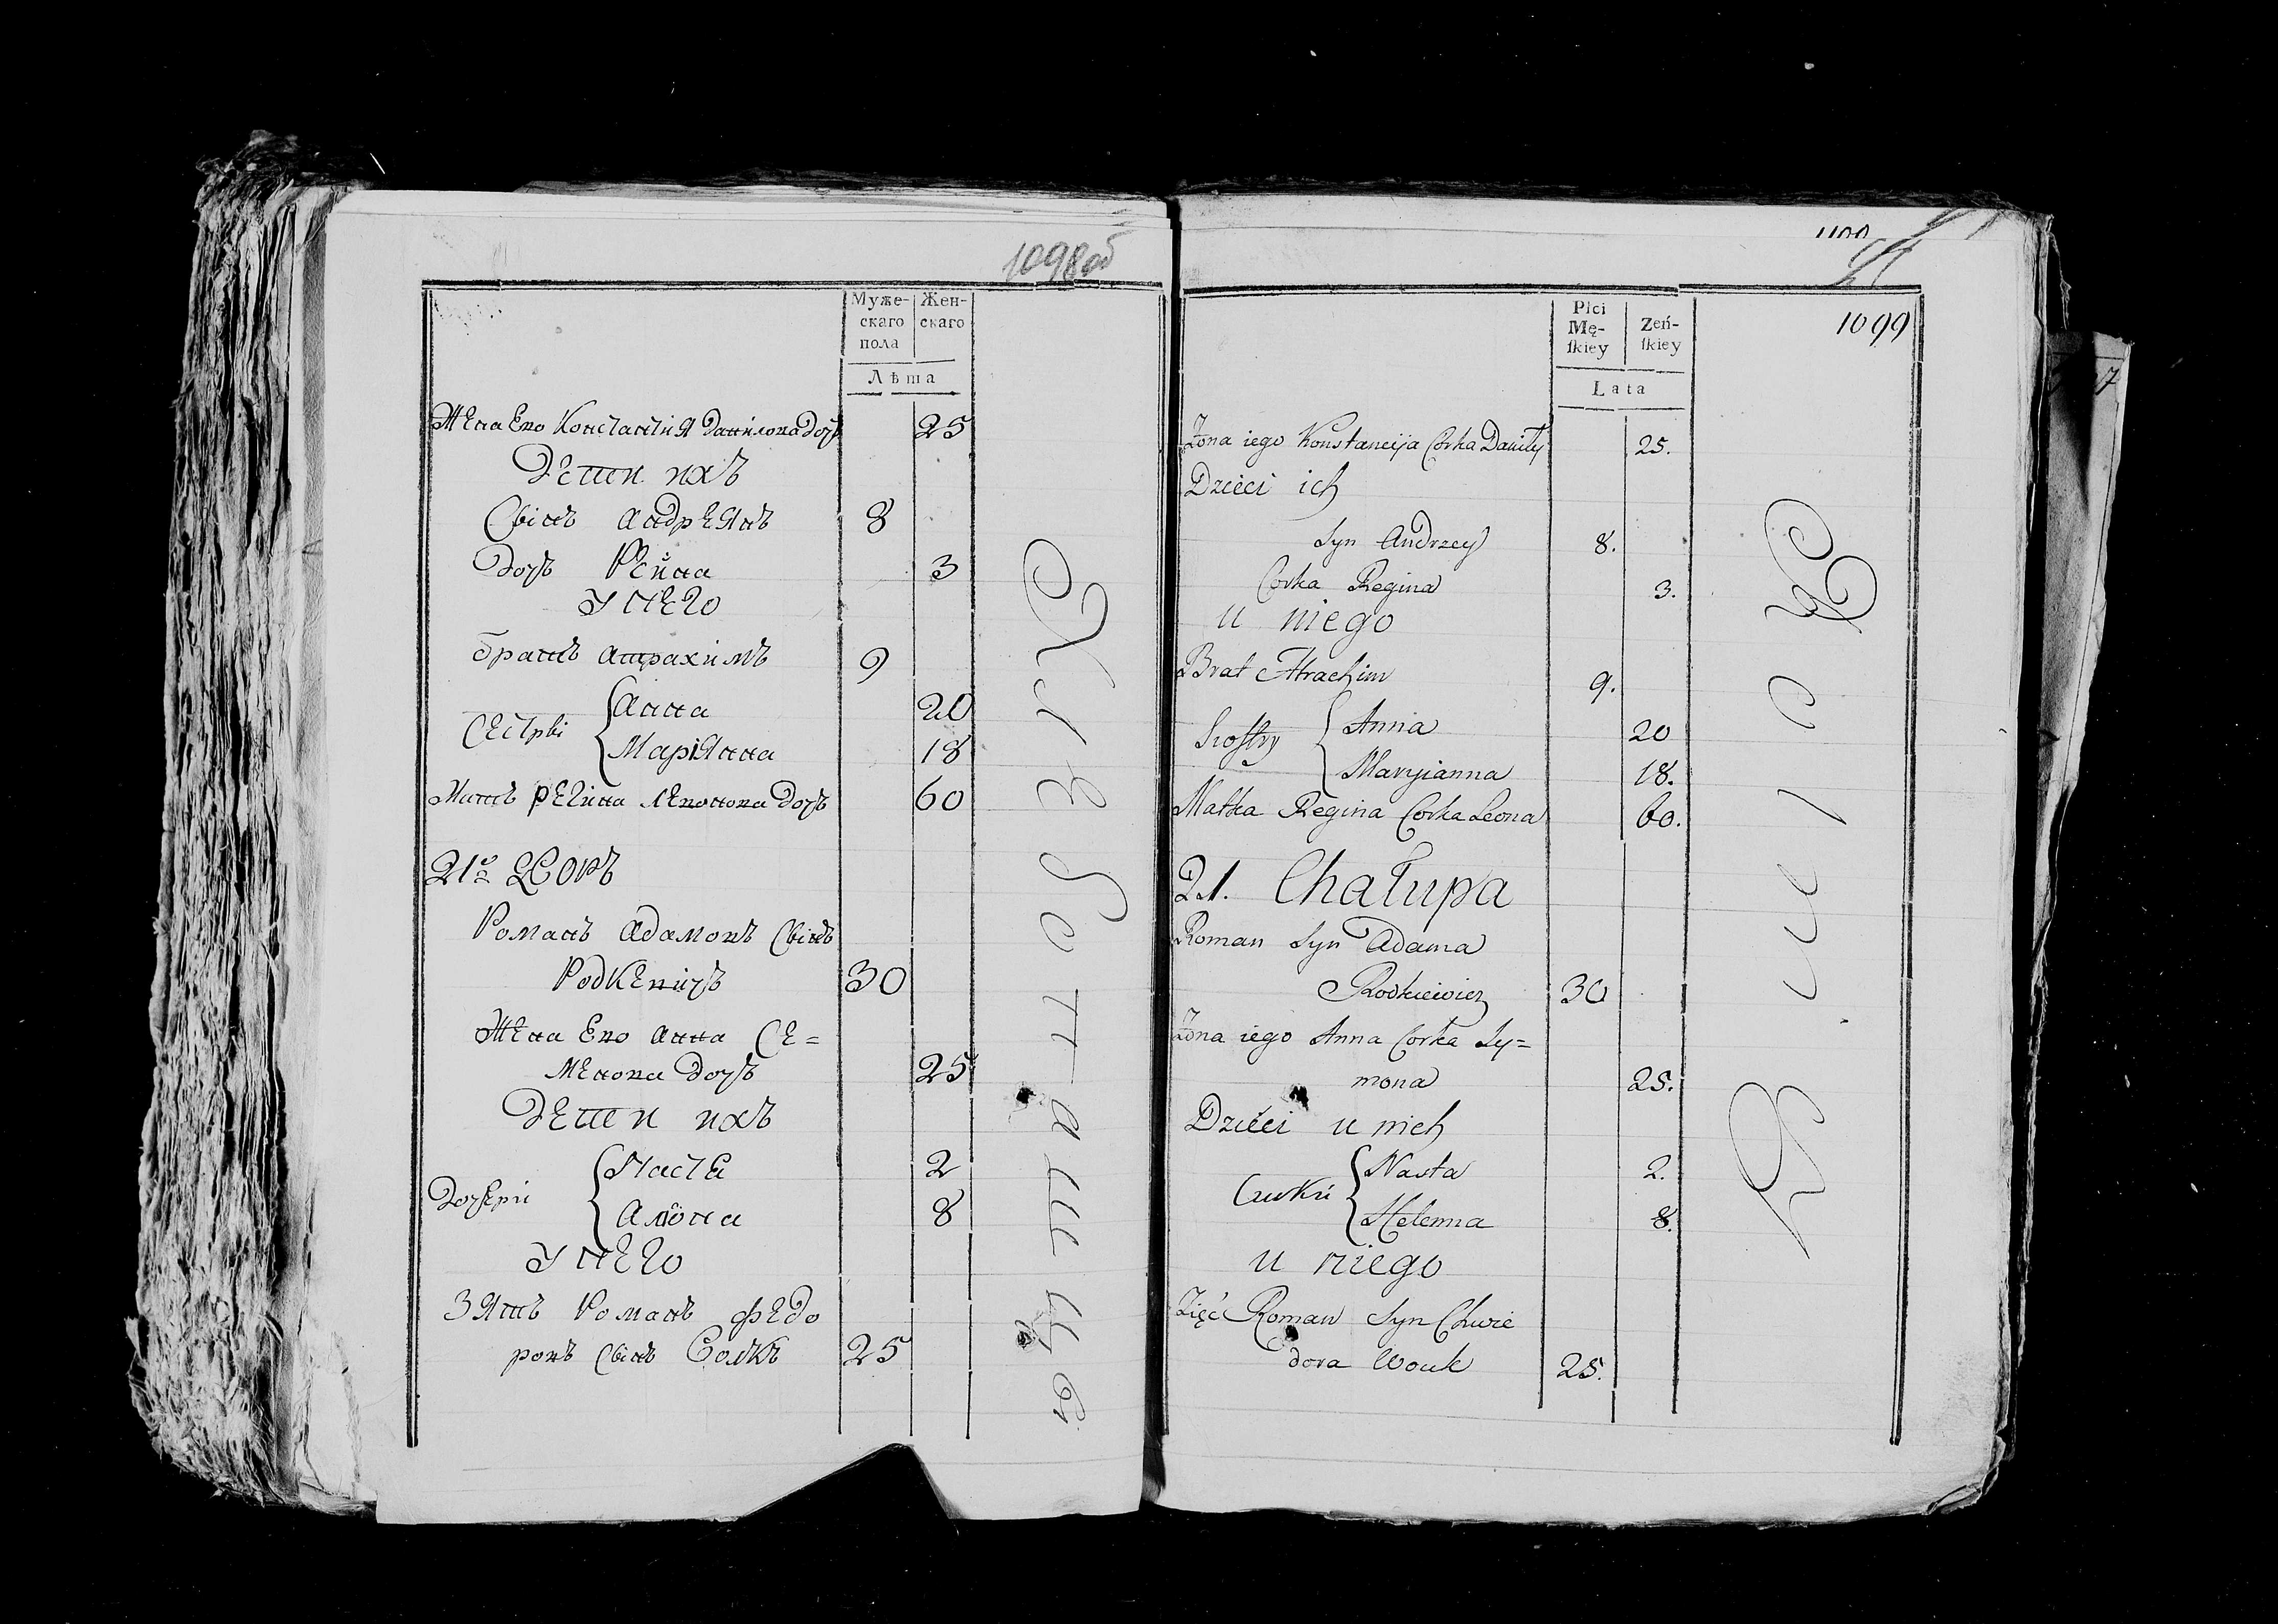 1098об
Муже-
скаго
пола
Жен-
скаго
Лѣта
Жена Его Константія Данилова дочь 25
Дети ихъ
Сынъ Андреянъ 8
дочь Рейна 3
У Него
братъ Атрахимъ 9
Сестры
Анна 20
Маріянна 18
Мать Регина Левонова дочь 60
21й Дворъ
Романъ Адамовъ Сынъ
Родкевичь 30
Жена Его Анна Се=
менова дочь 25
Дети ихъ
дочери
Наста 2
Алюна 8
У Него
Зять Романъ Федо
ровъ Сынъ Волкъ 25
1100
1099
Płci
Mę-
skiey
Zeń-
skiey
Lata
Żona iego Konstancyja Corka Daniły 25.
Dzieci ich
Syn Andrzey 8.
Corka Regina 3.
u niego
Brat Atrachim 9.
Siostry
Anna 20
Maryianna 18.
Matka Regina Corka Leona 60.
21. Chałupa
Roman Syn Adama
Rodkiewicz 30
Żona iego Anna Corka Sy=
mona 25.
Dzieci u nich
Curki
Nasta 2.
Helenna 8.
u niego
Zięć Roman Syn Chwie
dora Wouk 25.